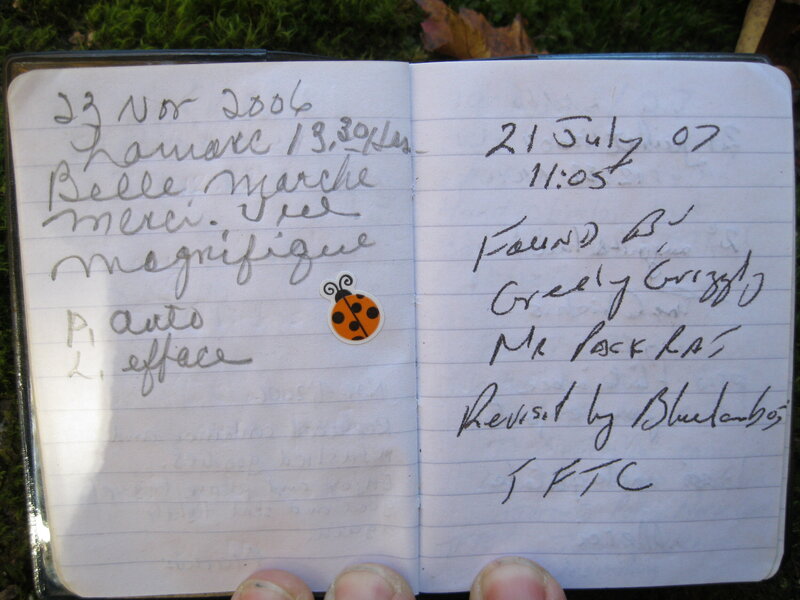 23 Nov 2006
Lamarc 13,30 Hes.
Belle Marche
Merci. Vue
Magnifique
P, auto
L, efface
21 July 07
11:05
FOUND BY
Greely Grizzly
MR PACK RAT
Revisit by Bluelamb05
TFTC